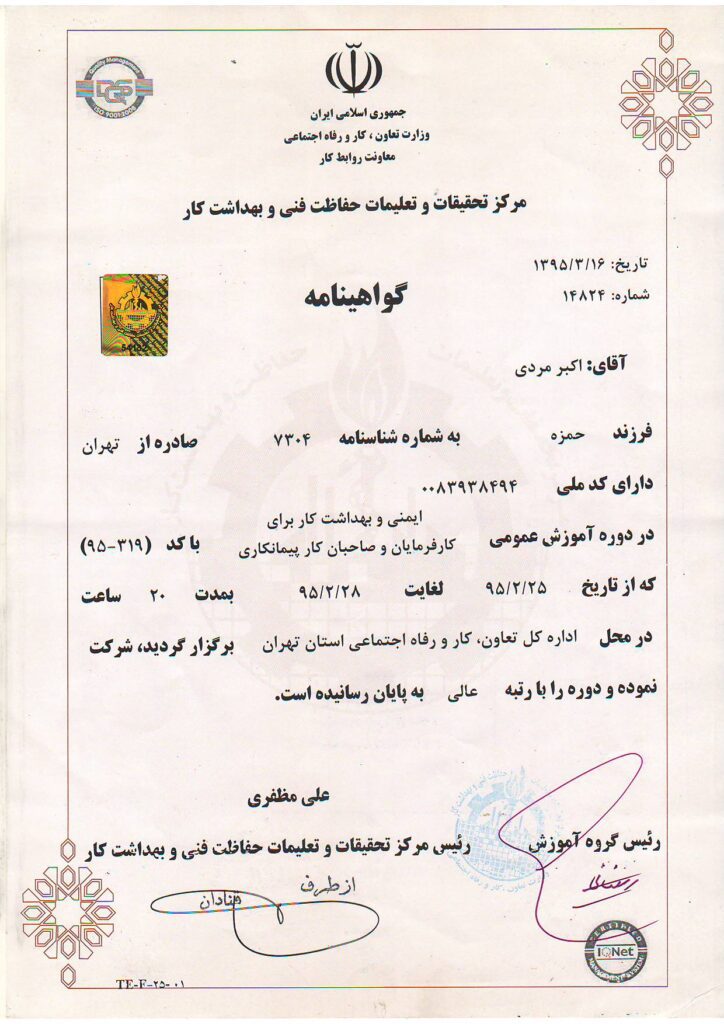 Quality Management
DQS
ISO 9001:2008
جمهوری اسلامی ایران
وزارت تعاون ، کار و رفاه اجتماعی
معاونت روابط کار
مرکز تحقیقات و تعلیمات حفاظت فنی و بهداشت کار
تاریخ: ۱۳۹۵/۳/۱۶
شماره: ۱۴۸۲۴
گواهینامه
آقای: اکبر مردی
فرزند حمزه به شماره شناسنامه ۷۳۰۴ صادره از تهران
دارای کد ملی ۰۰۸۳۹۳۸۴۹۴
در دوره آموزش عمومی ایمنی و بهداشت کار برای
کارفرمایان و صاحبان کار پیمانکاری با کد (۳۱۹-۹۵)
که از تاریخ ۹۵/۲/۲۵ لغایت ۹۵/۲/۲۸ بمدت ۲۰ ساعت
در محل اداره کل تعاون، کار و رفاه اجتماعی استان تهران برگزار گردید، شرکت
نموده و دوره را با رتبه عالی به پایان رسانیده است.
علی مظفری
رئیس گروه آموزش رئیس مرکز تحقیقات و تعلیمات حفاظت فنی و بهداشت کار
از طرف
CERTIFIED
IQNet
MANAGEMENT SYSTEM
TE-F-۲۵-۰۱